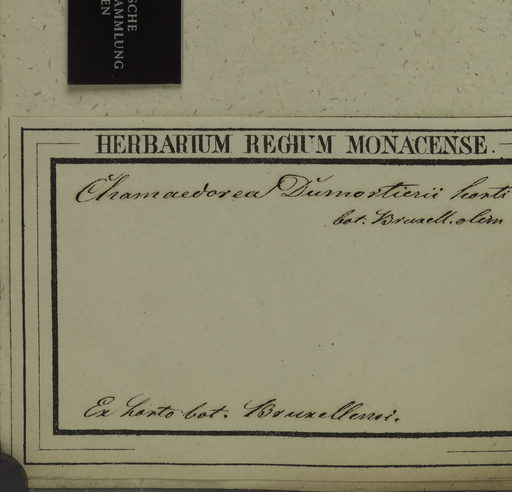 SCHE
AMMLUNG
EN
HERBARIUM REGIUM MONACENSE.
Chamaedorea Dumortierii horti
bot. Bruxell. olim
Ex horto bot. Bruxellensi.